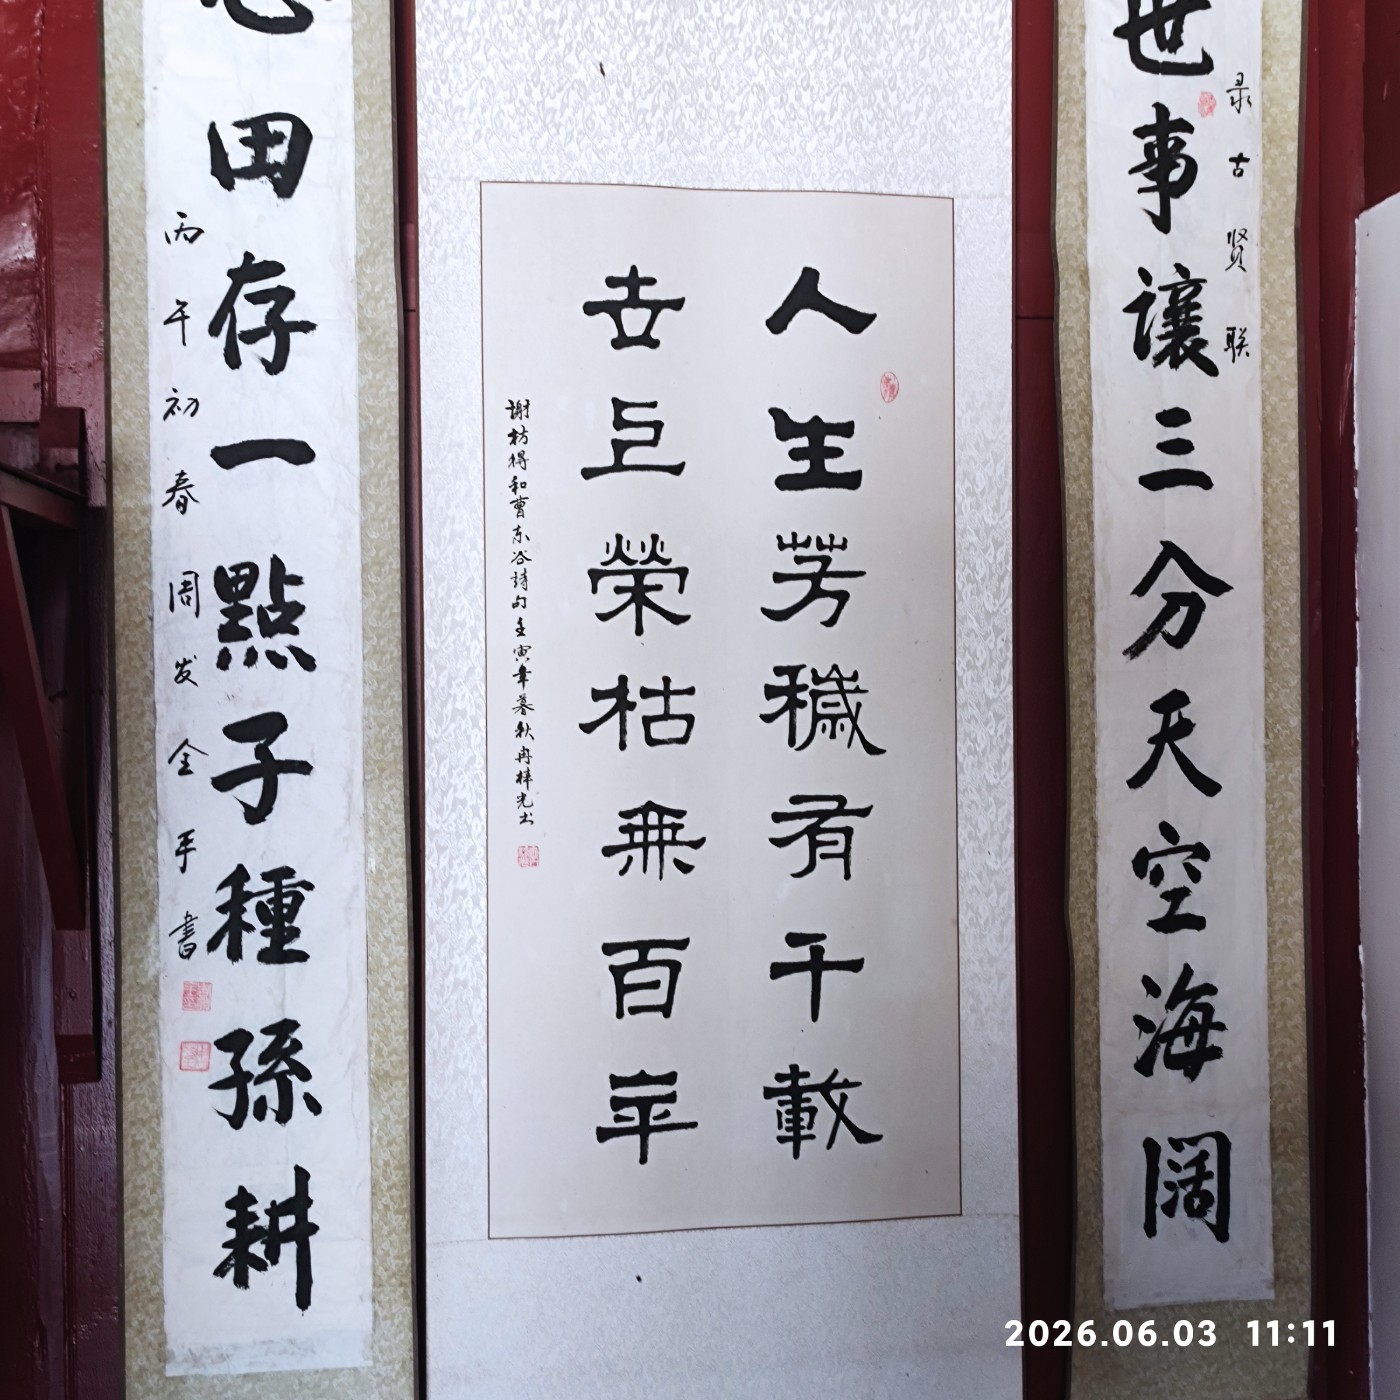 录古贤联
世事讓三分天空海阔
人生芳穢有千載
世上榮枯無百年
謝枋得和曹东谷詩句壬寅年暮秋冉梓光书
心田存一點子種孫耕
丙午初春周发全手書
2026.06.03 11:11